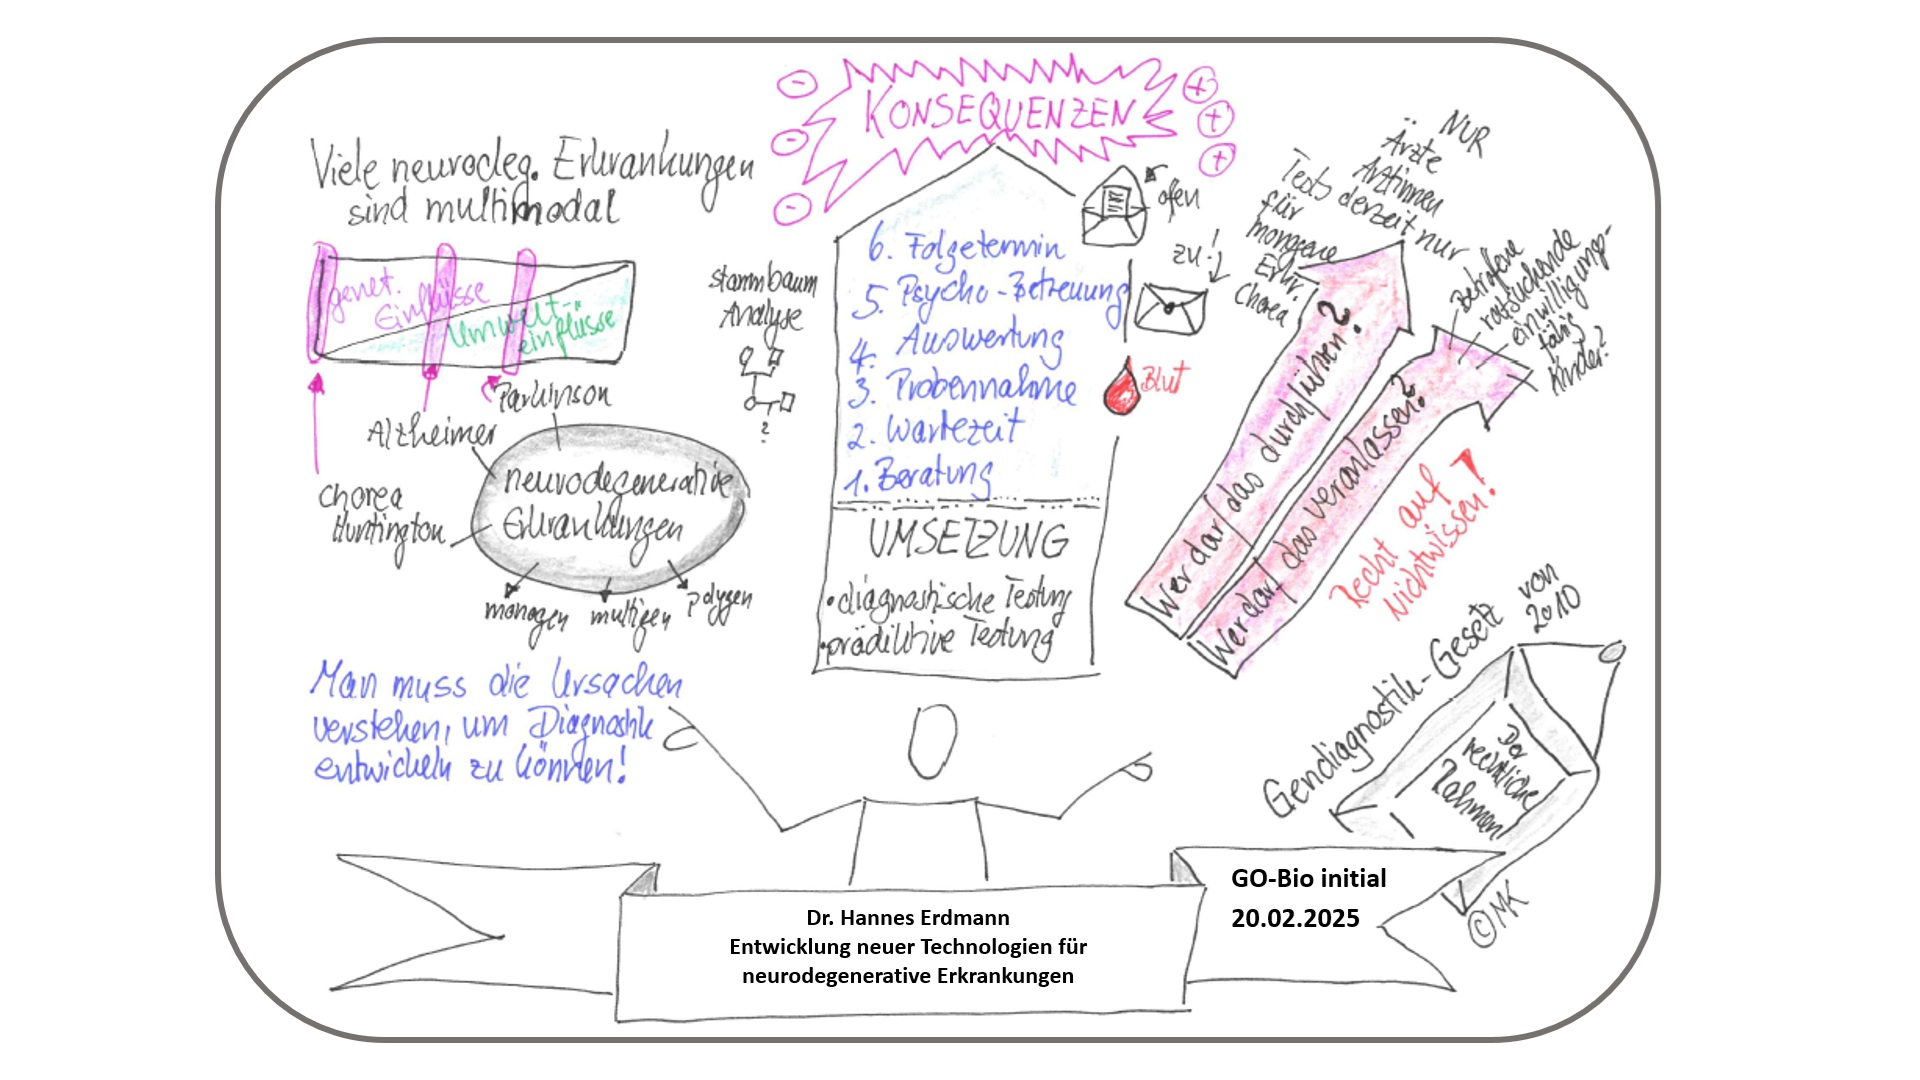 KONSEQUENZEN
Viele neurodeg. Erkrankungen
sind multimodal
genet.
Einflüsse
Umwelt-
einflüsse
Parkinson
Alzheimer
Chorea
Huntington
neurodegenerative
Erkrankungen
monogen
multigen
polygen
Man muss die Ursachen
verstehen, um Diagnostik
entwickeln zu können!
Stammbaum
Analyse
?
6. Folgetermin
5. Psycho-Betreuung
4. Auswertung
3. Probennahme
2. Wartezeit
1. Beratung
UMSETZUNG
• diagnostische Testung
• prädiktive Testung
ofen
zu!
Blut
NUR
Ärzte
Ärztinnen
Tests derzeit nur
für
mongene
Erkr.
Chorea
Wer darf das durchführen?
Wer darf das veranlassen?
Betrofene
ratsuchende
einwilligungs-
fähig
Kinder?
Recht auf
Nichtwissen!
Gendiagnostik-Gesetz von
2010
Der
rechtliche
Rahmen
©MK
GO-Bio initial
20.02.2025
Dr. Hannes Erdmann
Entwicklung neuer Technologien für
neurodegenerative Erkrankungen